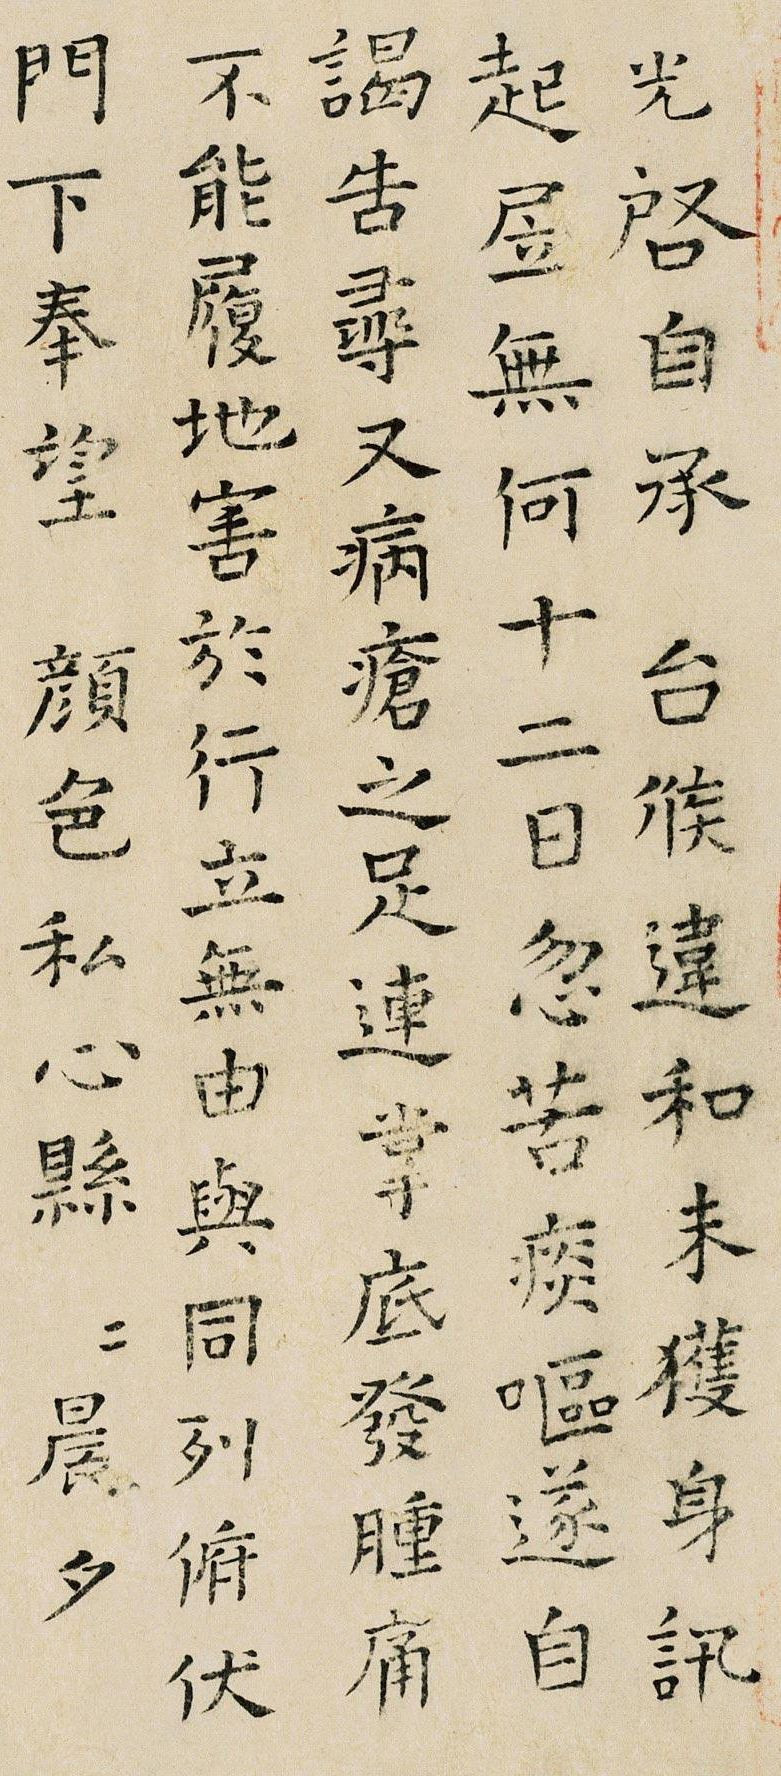 光啓自承　台候違和未獲身訊
起居無何十二日忽苦痰嘔遂自
謁告尋又病瘡之足連掌底發腫痛
不能履地害於行立無由與同列俯伏
門下奉望　顔色私心縣〻晨夕